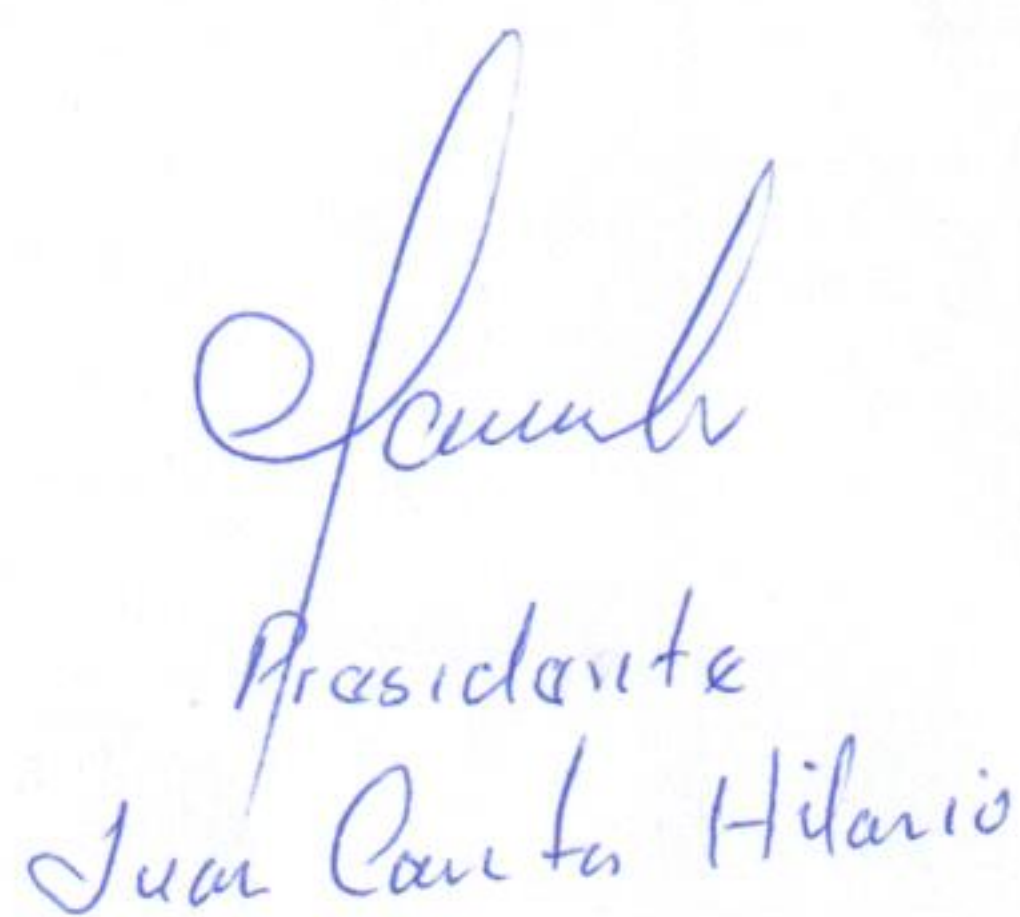 Presidente
Juan Canto Hilario